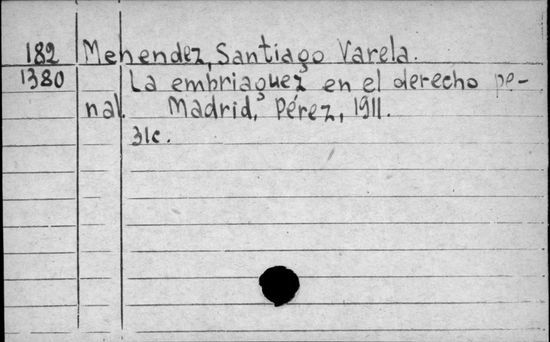 182 Menendez, Santiago Varela.
1380 La embriaguez en el derecho pe-
nal. Madrid, Pérez, 1911.
31c.